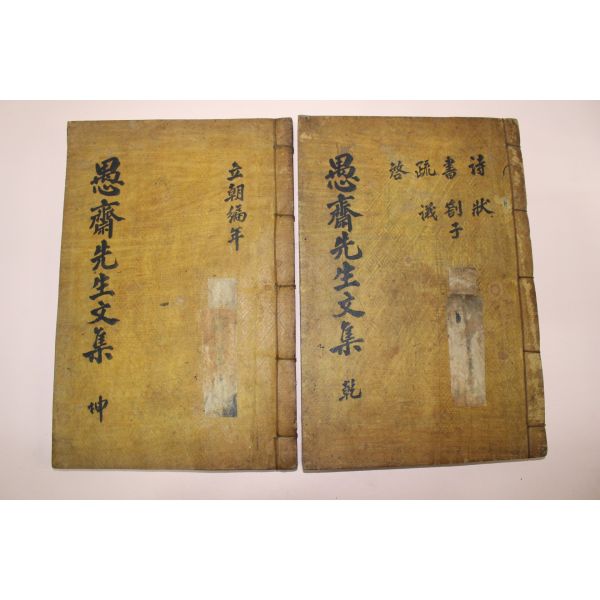 詩 狀
書 劄子
疏 議
啓
愚齋先生文集 乾
立朝編年
愚齋先生文集 坤